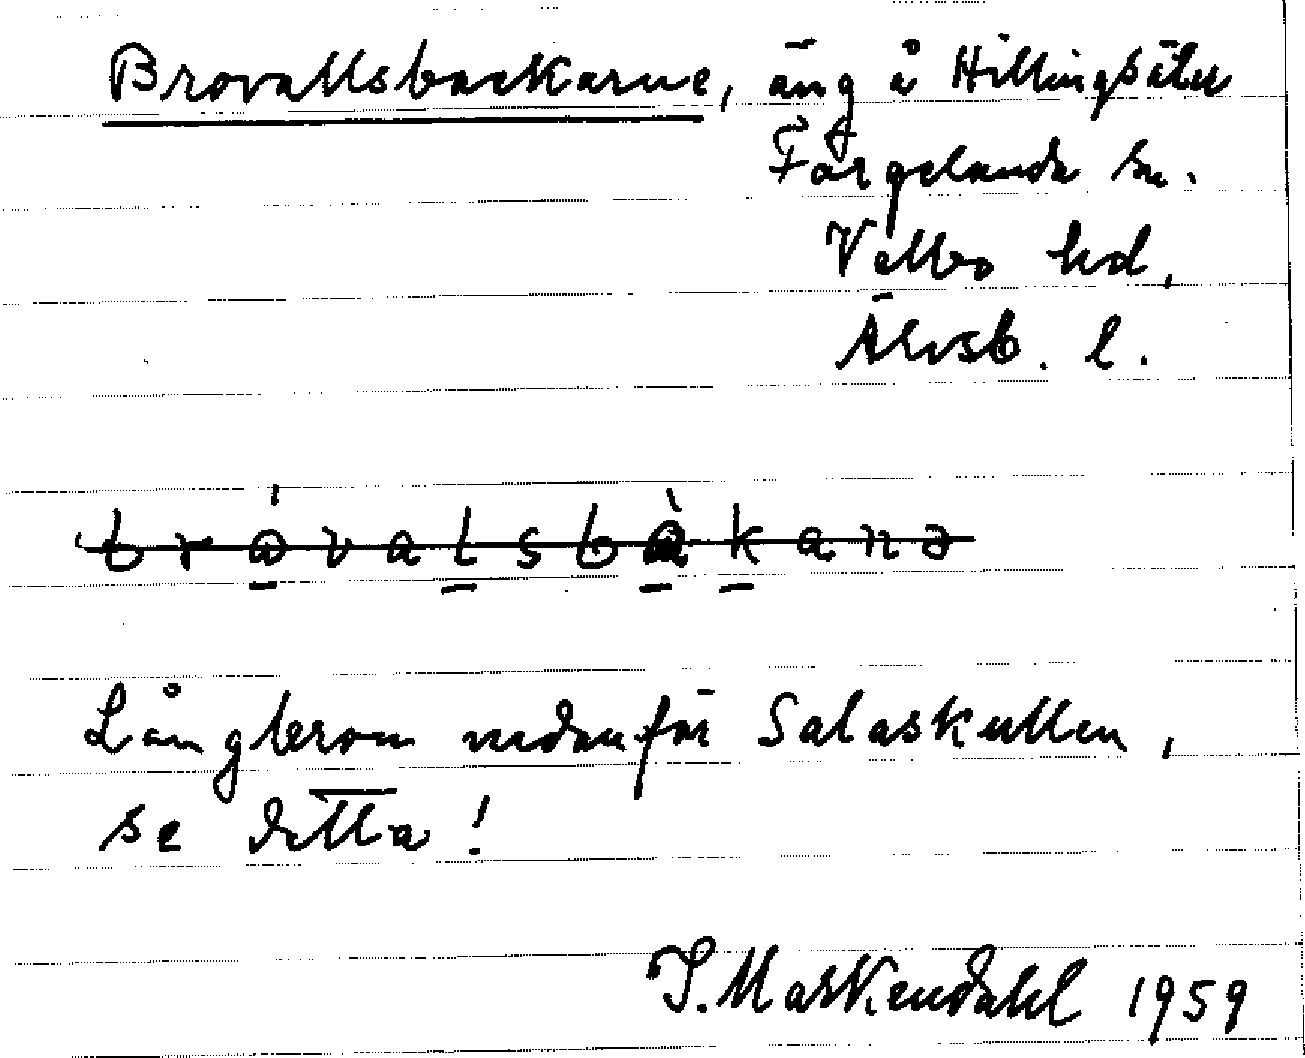 Brovallsbackarne, äng å Hillingsäter
Färgelanda sn.
Valbo hd,
Älvsb. l.
bråvalsbàkanə
Långbrom nedanför Salaskullen,
se detta!
I. Markendahl 1959